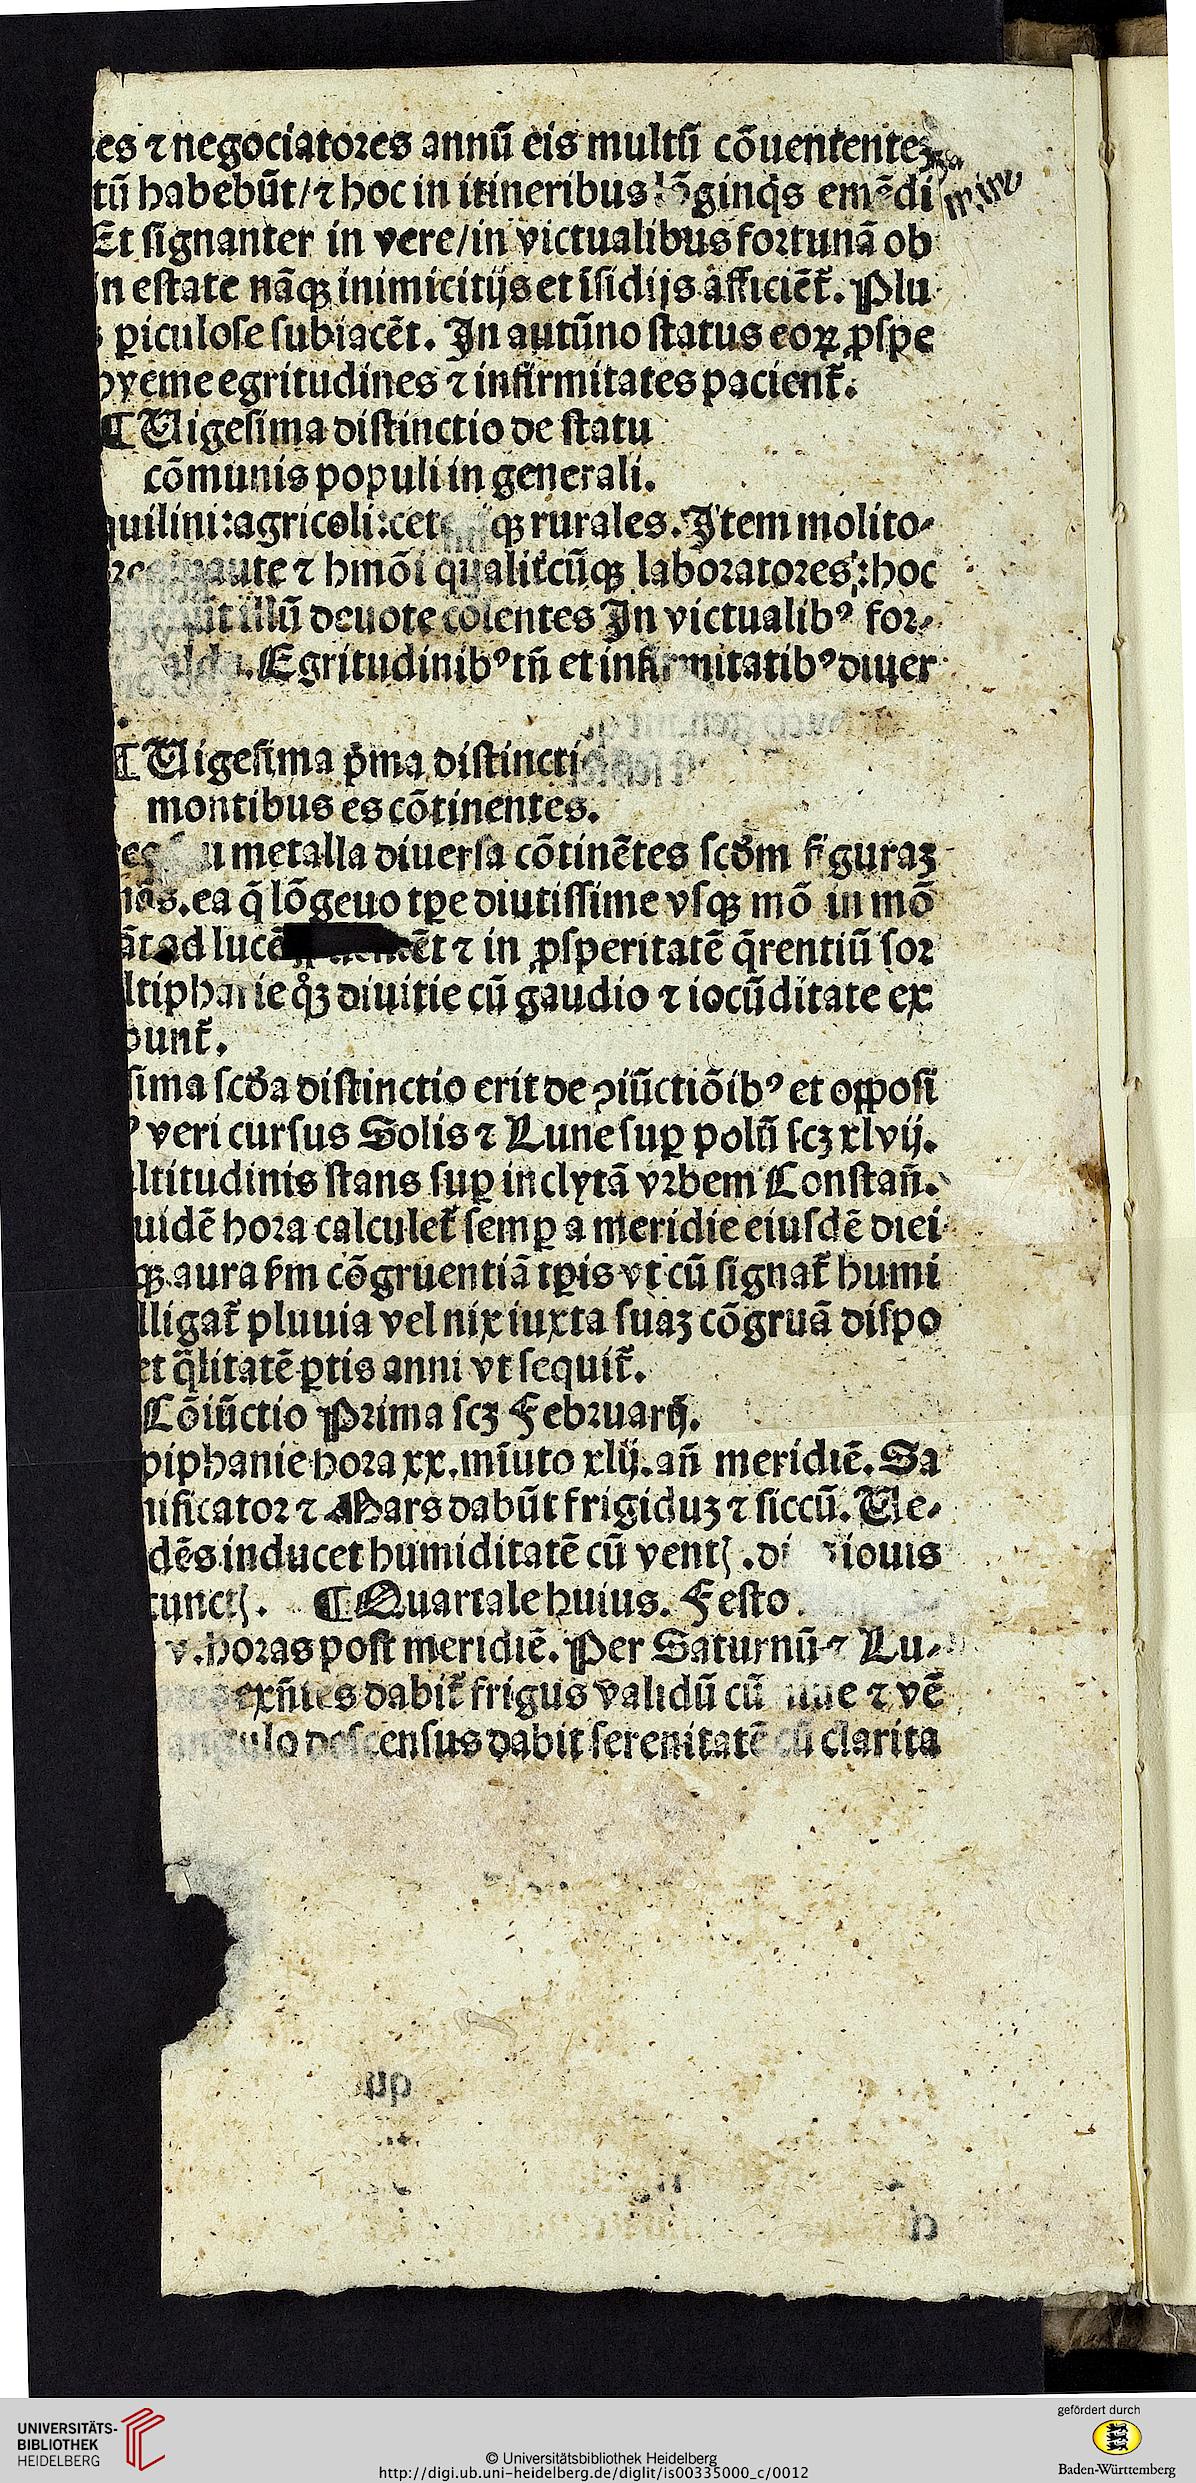 es ⁊ negociatores annū eis multū cōuententez
tū habebūt/⁊ hoc in itineribus lōginq̇s emēdi
Et signanter in vere/in victualibus fortunā ob
in estate nāqꝫ inimicitijs et īsidijs afficiēt̄. Plu
ꝑiculose subiacēt. In autūno status eoꝝ ꝓspe
hyeme egritudines ⁊ infirmitates pacient̄.
¶ Uigesima distinctio de statu
cōmunis populi in generali.
quilini:agricoli:cet qꝫ rurales. Item molito-
aute ⁊ hmōi qualitcūqꝫ laboratores:hoc
illū deuote colentes In victualibꝰ for-
Egritudinibꝰ tn̄ et infirmitatibꝰ diuer
¶ Uigesima p̄ma distincti
montibus es cōtinentes.
u metalla diuersa cōtinētes scd̄m figuraꝫ
nās. ea q̄ lōgeuo tꝑe diutissime vsqꝫ mō in mō
āt ad lucē ēt ⁊ in ꝓsperitatē q̄rentiū for
ltipharie qͦꝫ diuitie cū gaudio ⁊ iocūditate ex
bunt̄.
sima scd̄a distinctio erit de ꝯiūctiōibꝰ et opposi
ꝰ veri cursus Solis ⁊ Lune suꝑ polū scꝫ xlvij.
ltitudinis stans suꝑ inclytā vrbem Constan̄.
uidē hora calculet̄ semꝑ a meridie eiusdē diei
qꝫ aura ẜm cōgruentiā tꝑis vt cū signat̄ humi
lligat̄ pluuia vel nix iuxta suaꝫ cōgruā dispo
et q̄litatē ꝑtis anni vt sequit̄.
Cōiūctio Prima scꝫ Februarij.
piphanie hora xx. mīuto xlij. an̄ meridiē. Sa
nificator ⁊ Mars dabūt frigiduꝫ ⁊ siccū. Ue-
dēs inducet humiditatē cū ventꝭ. iouis
cunctꝭ. ¶ Quartale huius. Festo
v. horas post meridiē. Per Saturnū ⁊ Lu-
exn̄tes dabit̄ frigus validū cū niue ⁊ vē
angulo descensus dabit serenitatē cū clarita
UNIVERSITÄTS-
BIBLIOTHEK
HEIDELBERG
© Universitätsbibliothek Heidelberg
http://digi.ub.uni-heidelberg.de/diglit/is00335000_c/0012
gefördert durch
Baden-Württemberg